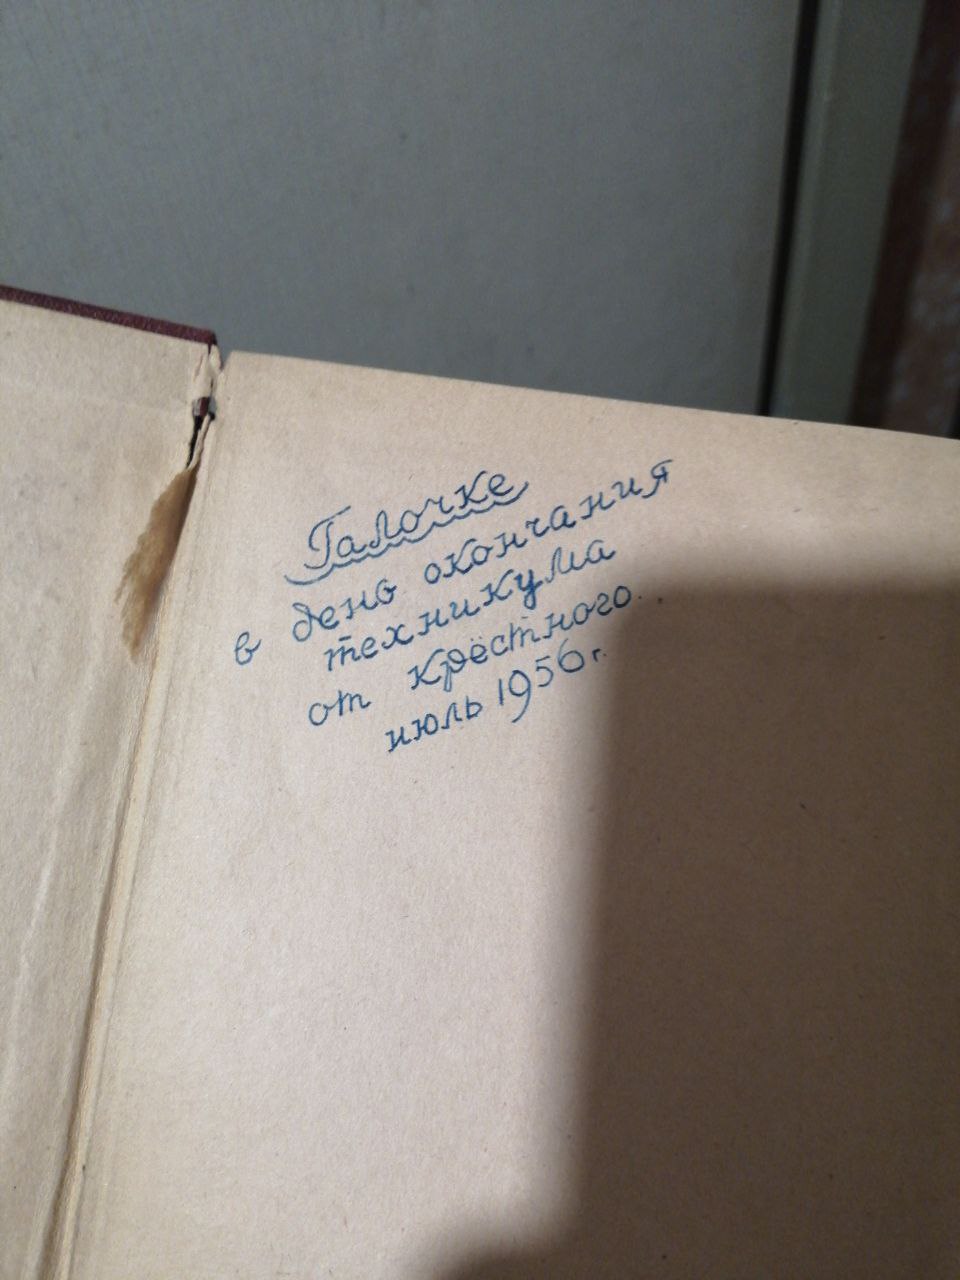 Галочке
в день окончания
техникума
от крёстного.
июль 1956 г.